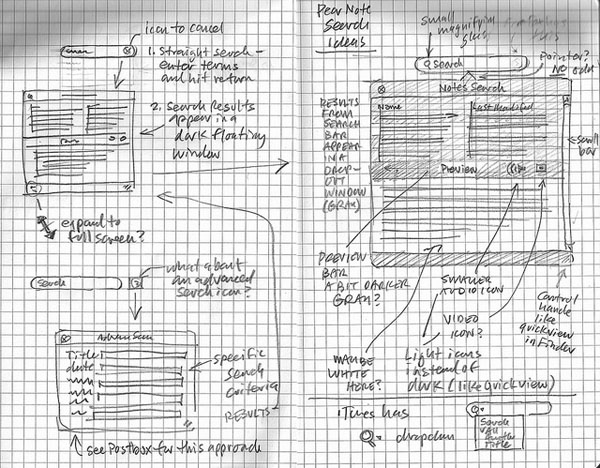 icon to cancel
1. Straight search -
enter terms
and hit return
2. Search Results
appear in a
dark floating
window
expand to
full screen?
Search
what about
an advanced
search icon?
Title
date
specific
search
criteria
RESULTS
see Postbox for this approach
Pear Note
Search
Ideas
small
magnifying
glass
search
Pointer?
NO
Notes Search
Name
Last Modified
RESULTS
FROM
SEARCH
BAR
APPEAR
IN A
DROP-
OUT
WINDOW
(GRAY)
scroll
bar
Preview
PREVIEW
BAR
A BIT DARKER
GRAY?
SMALLER
AUDIO ICON
VIDEO
ICON?
Control
handle
like
quickview
in Finder
MAYBE
WHITE
HERE?
Light icons
instead of
dark (like Quickview)
iTunes has
dropdown
Search
All
Title